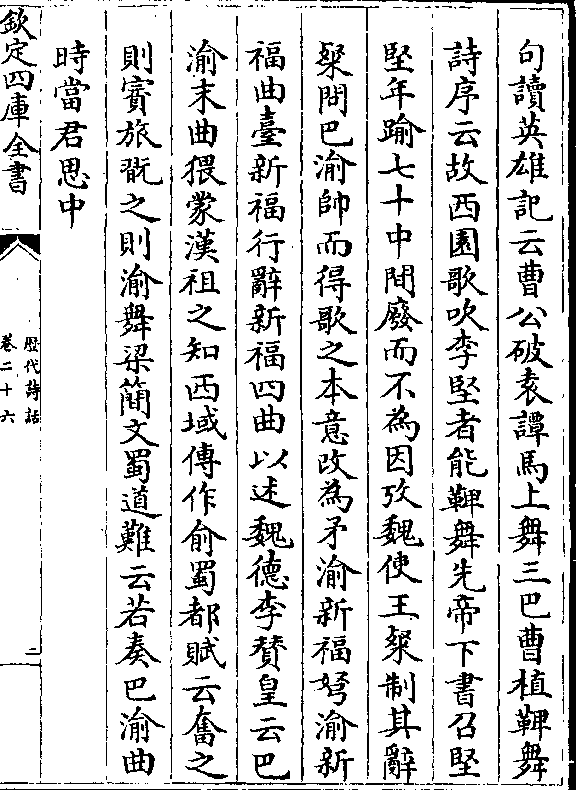 句讀英雄記云曹公破袁譚馬上舞三巴曹植鞞舞
詩序云故西園歌吹李堅者能鞞舞先帝下書召堅
堅年踰七十中間廢而不為因攷魏使王粲制其辭
粲問巴渝帥而得歌之本意改為矛渝新福弩渝新
福曲臺新福行辭新福四曲以述魏德李賛皇云巴
渝末曲猥蒙漢祖之知西域傳作俞蜀都賦云奮之
則賨旅翫之則渝舞梁蕳文蜀道難云若奏巴渝曲
時當君思中
欽定四庫全書
歷代詩話
卷二十六
二